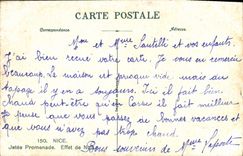 CARTE POSTALE
Correspondance Adresse
Mme et Mme et vos enfants.
J'ai bien reçu votre carte. Je vous en remercie
beaucoup. La maison est presque vide mais au
tapage il y en a toujours. Ici il fait bien
chaud peut être qu'en Corse il fait meilleur
Je pense que vous passez de bonnes vacances et
que vous n'avez pas trop chaud.
Bons souvenirs de Mme
150. NICE.
Jetée Promenade. Effet de